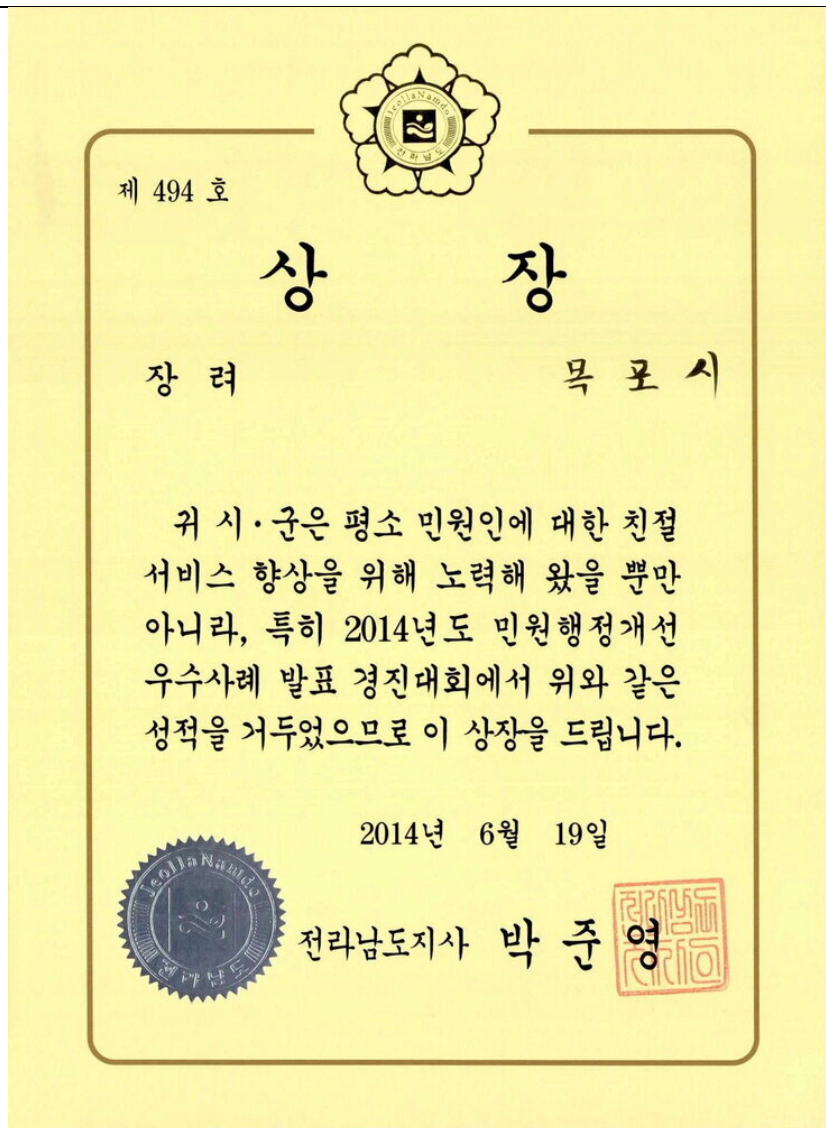 JeollaNamdo
전라남도
제 494 호
상 장
장 려 목 포 시
귀 시·군은 평소 민원인에 대한 친절
서비스 향상을 위해 노력해 왔을 뿐만
아니라, 특히 2014년도 민원행정개선
우수사례 발표 경진대회에서 위와 같은
성적을 거두었으므로 이 상장을 드립니다.
2014년 6월 19일
JeollaNamdo
전라남도
전라남도지사 박 준 영